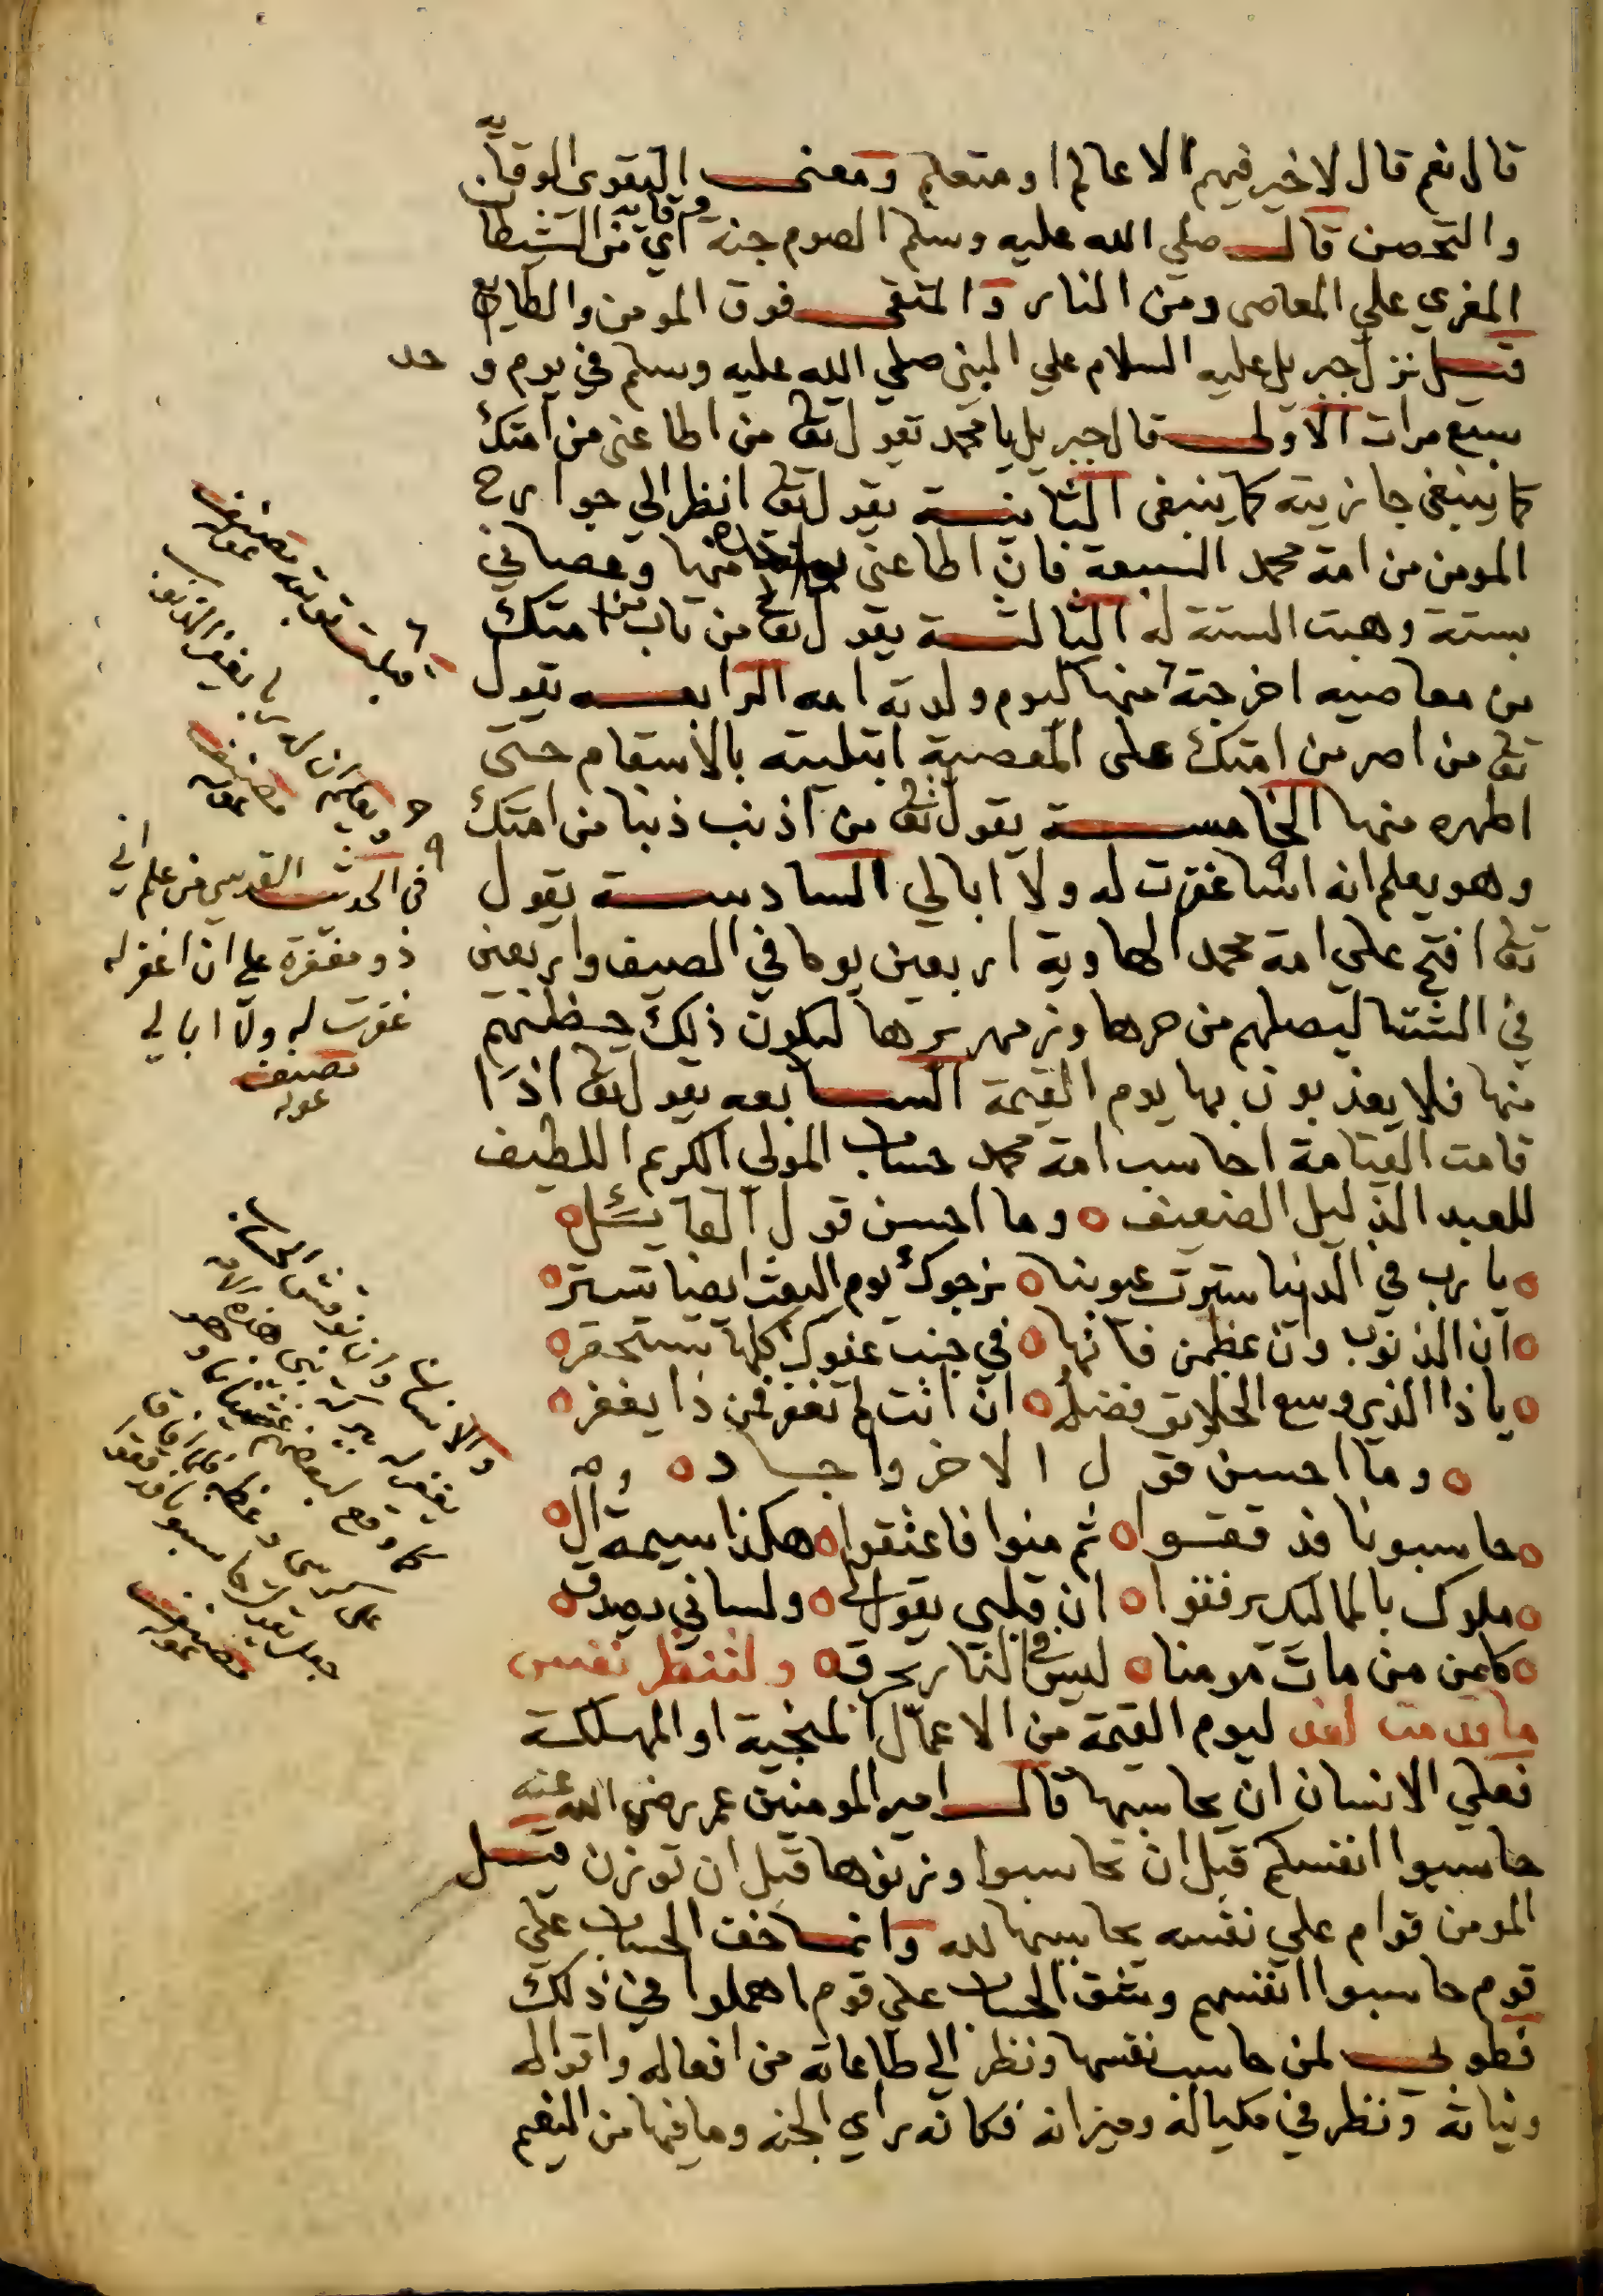 قال نعم قال لا خير فيهم الا عالم او متعلم ومعنى التقوى الوقاية
والتحصن قال صلي الله عليه وسلم الصوم جنة اي وقاية من الشيطان
المغري علي المعاصي ومن النار والمتقي فوق المومن والطايع
قيل نزل جبريل عليه السلام علي النبي صلي الله عليه وسلم في يوم واحد
سبع مرات الاولى قال جبريل يا محمد يقول تعا من اطاعني من امتك
كما ينبغي جازيته كما ينبغي الثانية يقول تعا انظر الي جوارح
المومن من امة محمد السبعة فان اطاعني منها وعصاني
بستة وهبت الستة له الثالثة يقول تعا من تاب من امتك
من معاصيه اخرجته منها كيوم ولدته امه الرابعه يقول
تعا من اصر من امتك على المعصية ابتليته بالاسقام حتى
اطهره منها الخامسة يقول تعا من اذنب ذنبا من امتك
وهو يعلم انه اشا غفرت له ولا ابالي السادسة يقول
تعا افتح علي امة محمد الهاوية اربعين يوما في الصيف واربعين
في الشتا ليصلهم من حرها وزمهريرها ليكون ذلك حظهم
منها فلا يعذبون بها يوم القيمة السابعه يقول تعا اذا
قامت القيامة احاسب امة محمد حساب المولي الكريم اللطيف
للعبد الذليل الضعيف وما احسن قول القايل
يا رب في الدنيا سترت عيوبنا نرجوك يوم البعث ايضا تستر
ان الذنوب وان عظمن فانها في جنب عفوك كلها تستحقر
يا ذا الذي وسع الخلايق فضله ان انت لم تغفر فمن ذا يغفر
وما احسن قول الاخر واجاد
حاسبونا فدققوا ثم منوا فاعتقوا هكذا سيمة ال
ملوك بالمماليك يرفقوا ان قلبي يقول لي ولساني يصدق
كلمن من مات مومنا ليس في النار يحرق ولتنظر نفس
ما قدمت لغد ليوم القيمة من الاعمال المنجية او المهلكة
فعلي الانسان ان يحاسبها قال امير المومنين عمر رضي الله عنه
حاسبوا انفسكم قبل ان تحاسبوا وزنوها قبل ان توزن قيل
المومن قوام علي نفسه يحاسبها لله وانما خف الحساب علي
قوم حاسبوا انفسهم وشق الحساب علي قوم اهملوا في ذلك
فطوبى لمن حاسب نفسها ونظر الي طاعاته من افعاله واقواله
ونياته ونظر في مكياله وميزانه فكانه راي الجنه وما فيها من النعيم
في الحديث القدسي من علم اني
ذو مغفرة على ان اغفر له
غفرت له ولا ابالي